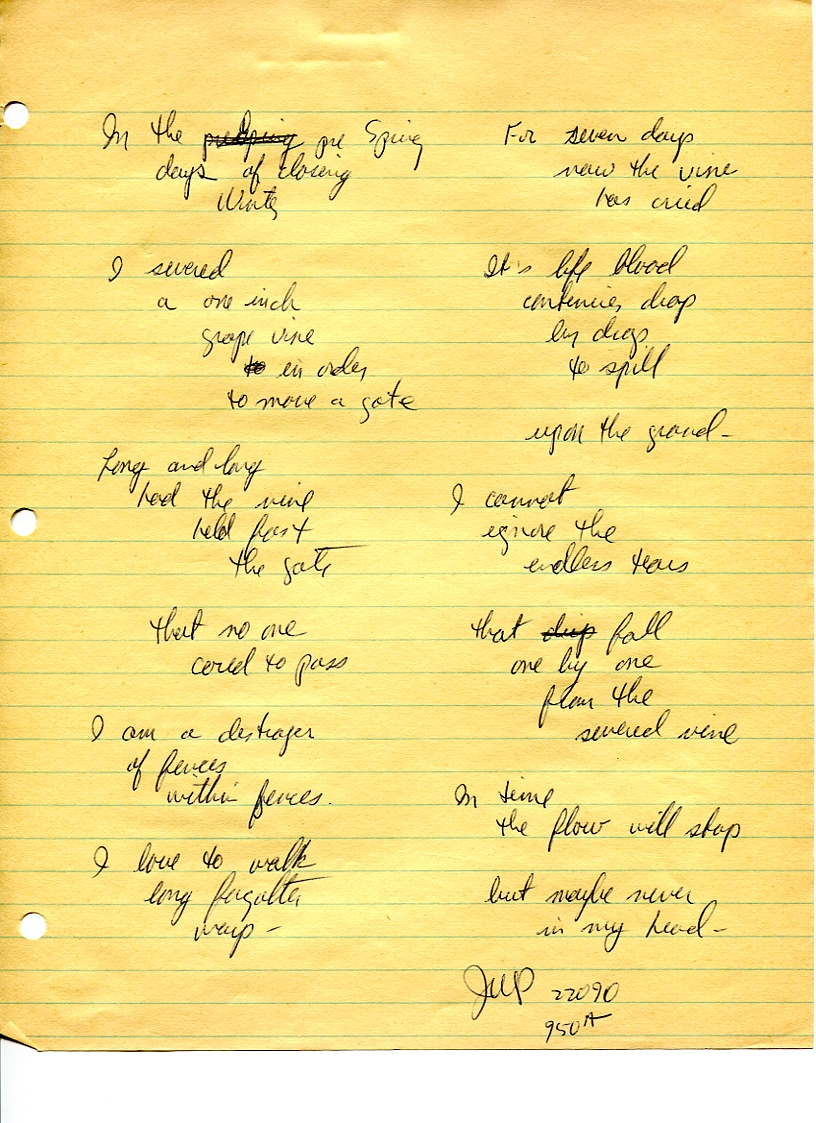 In the pre Spring
days of closing
Winter
I severed
a one inch
grape vine
in order
to move a gate
Long and long
had the vine
held fast
the gate
that no one
cared to pass
I am a destroyer
of fences
within fences.
I love to walk
long forgotten
ways –
For seven days
now the vine
has cried
It's life blood
continues drop
by drop
to spill
upon the ground –
I cannot
ignore the
endless tears
that drip fall
one by one
from the
severed vine
In time
the flow will stop
but maybe never
in my head –
JWP 22090
950A